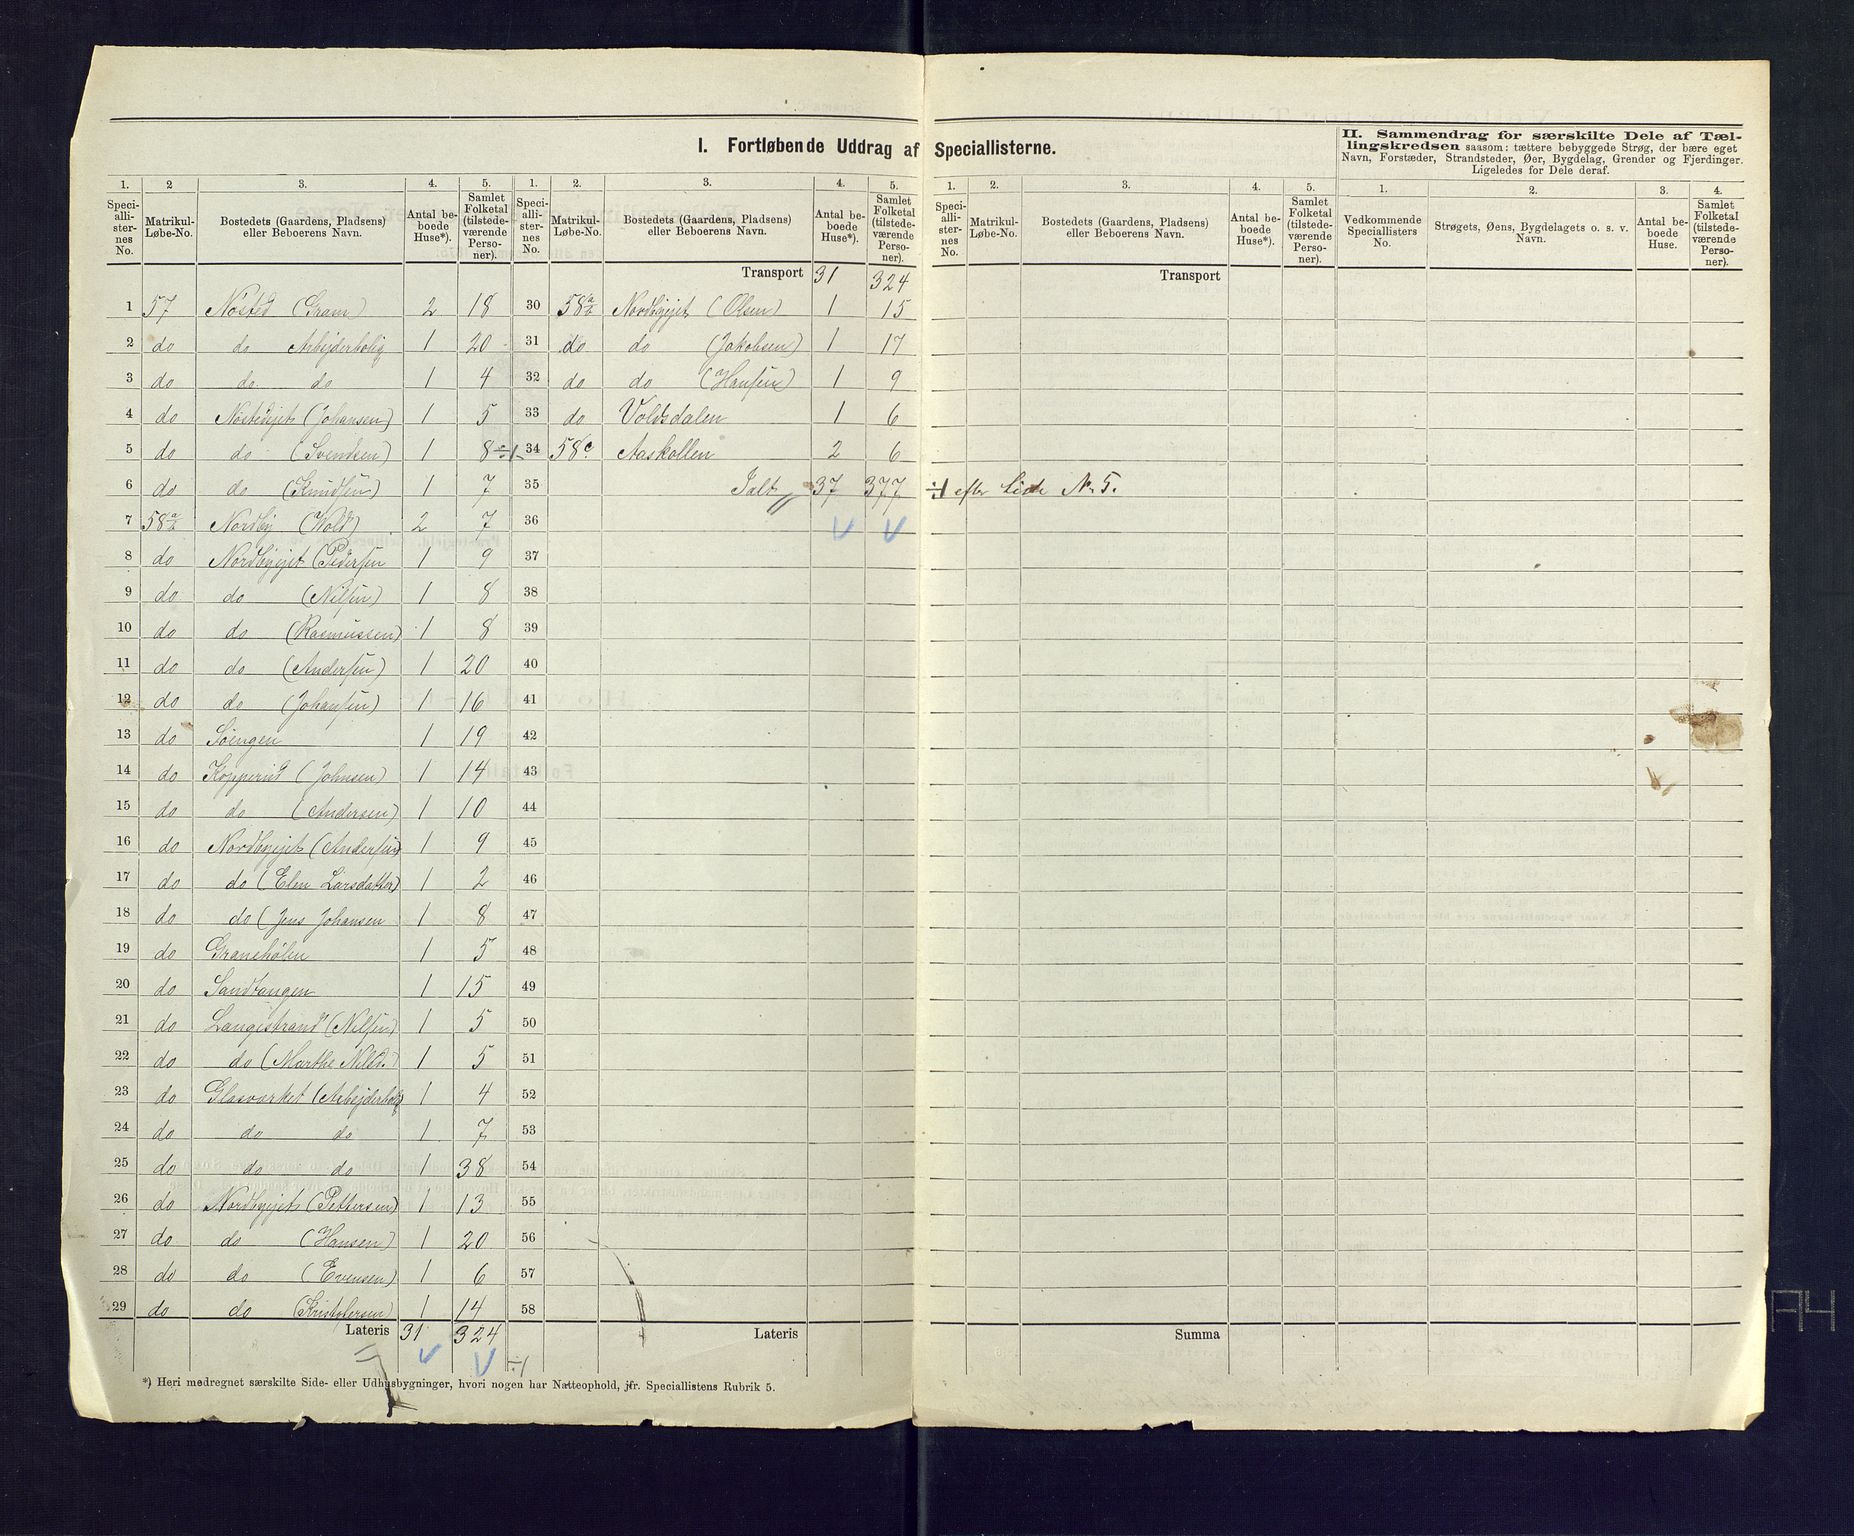 I. Fortløbende Uddrag af Speciallisterne.
II. Sammendrag for særskilte Dele af Tæl-
lingskredsen saasom: tættere bebyggede Strøg, der bære eget
Navn, Forstæder, Strandsteder, Øer, Bygdelag, Grender og Fjerdinger.
Ligeledes for Dele deraf.
1. 2 3. 4. 5. 1. 2. 3. 4. 5. 1. 2. 3. 4. 5. 1. 2. 3. 4.
Speciallisternes No. Matrikul-Løbe-No. Bostedets (Gaardens, Pladsens) eller Beboerens Navn. Antal beboede Huse*). Samlet Folketal (tilstedeværende Personer).
Speciallisternes No. Matrikul-Løbe-No. Bostedets (Gaardens, Pladsens) eller Beboerens Navn. Antal beboede Huse*). Samlet Folketal (tilstedeværende Personer).
Speciallisternes No. Matrikul-Løbe-No. Bostedets (Gaardens, Pladsens) eller Beboerens Navn. Antal beboede Huse*). Samlet Folketal (tilstedeværende Personer).
Vedkommende Speciallisters No. Strøgets, Øens, Bygdelagets o. s. v. Navn. Antal beboede Huse. Samlet Folketal (tilstedeværende Personer).
1 57 Nøsted (Gram) 2 18
2 do do Arbejderbolig 1 20
3 do do do 1 4
4 do Nøstedejet (Johansen) 1 5
5 do do (Svendsen) 1 8 ÷1
6 do do (Knudsen) 1 7
7 58a Nordby (Wold) 2 7
8 do Nordbyejet (Pedersen 1 9
9 do do (Nilsen) 1 8
10 do do (Rasmussen) 1 8
11 do do (Andersen) 1 20
12 do do (Johansen) 1 16
13 do Søengen 1 19
14 do (Johnsen) 1 14
15 do do (Andersen) 1 10
16 do Nordbyejet (Andersen) 1 9
17 do do (Elen Larsdatter) 1 2
18 do do (Jens Johansen 1 8
19 do Granehølen 1 5
20 do Sandtangen 1 15
21 do Langestrand (Nilsen) 1 5
22 do do (Marthe Nilsd.) 1 5
23 do Glasværket (Arbejderbolig 1 4
24 do do do 1 7
25 do do do 1 38
26 do Nordbyejet (Pettersen) 1 13
27 do do (Hansen) 1 20
28 do do (Evensen) 1 6
29 do do (Kristofersen) 1 14
Lateris 31 324
÷1
Transport 31 324
30 58a Nordbyejet (Olsen) 1 15
31 do do (Jakobsen) 1 17
32 do do (Hansen) 1 9
33 do Voldsdalen 1 6
34 58c Aaskollen 2 6
35 Ialt 37 377 ÷1 efter Liste No 5.
36
37
38
39
40
41
42
43
44
45
46
47
48
49
50
51
52
53
54
55
56
57
58
Lateris
Transport
Summa
*) Heri medregnet særskilte Side- eller Udhusbygninger, hvori nogen har Natteophold, jfr. Speciallistens Rubrik 5.